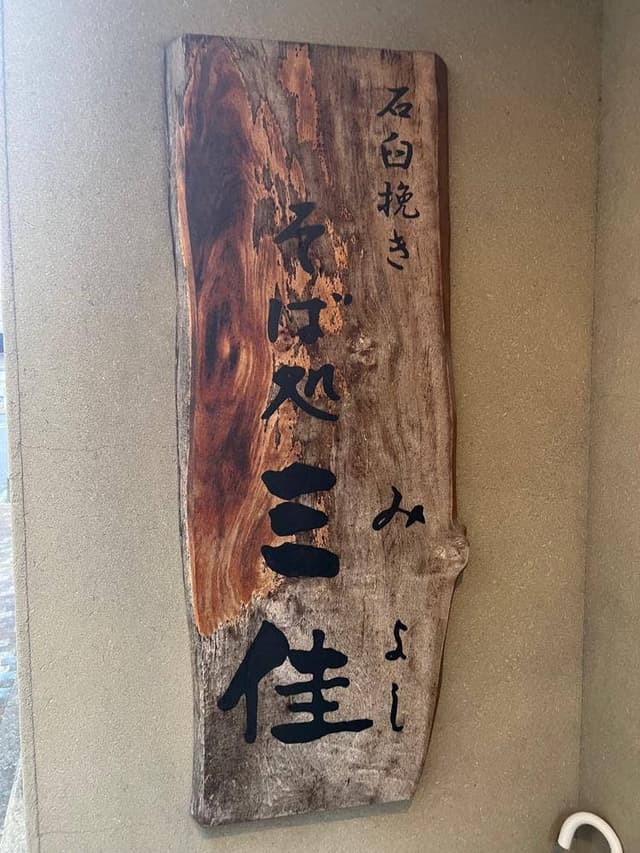 石臼挽き
そば処 三佳
みよし